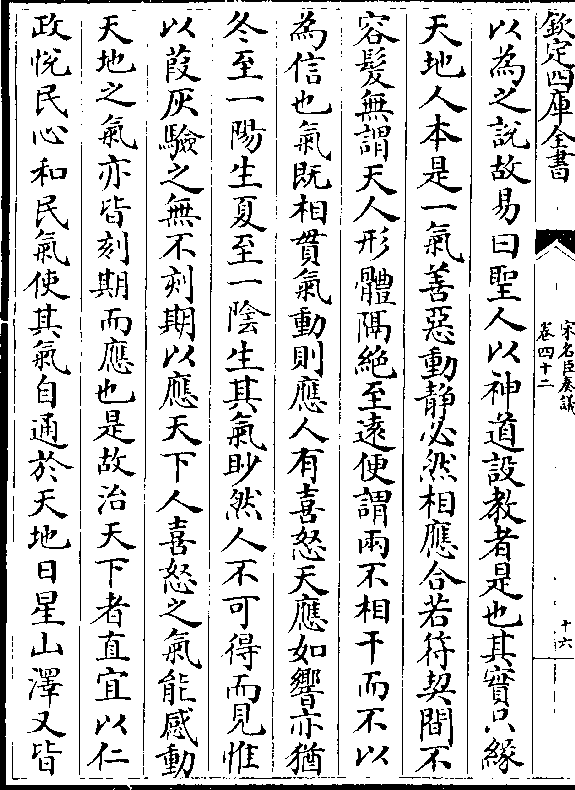 欽定四庫全書
宋名臣奏議
卷四十二
十六
以為之說故易曰聖人以神道設教者是也其實只緣
天地人本是一氣善惡動静必然相應合若符契間不
容髮無謂天人形體隔絶至遠便謂兩不相干而不以
為信也氣既相貫氣動則應人有喜怒天應如響亦猶
冬至一陽生夏至一陰生其氣眇然人不可得而見惟
以葭灰驗之無不刻期以應天下人喜怒之氣能感動
天地之氣亦皆刻期而應也是故治天下者直宜以仁
政悅民心和民氣使其氣自通於天地日星山澤又皆